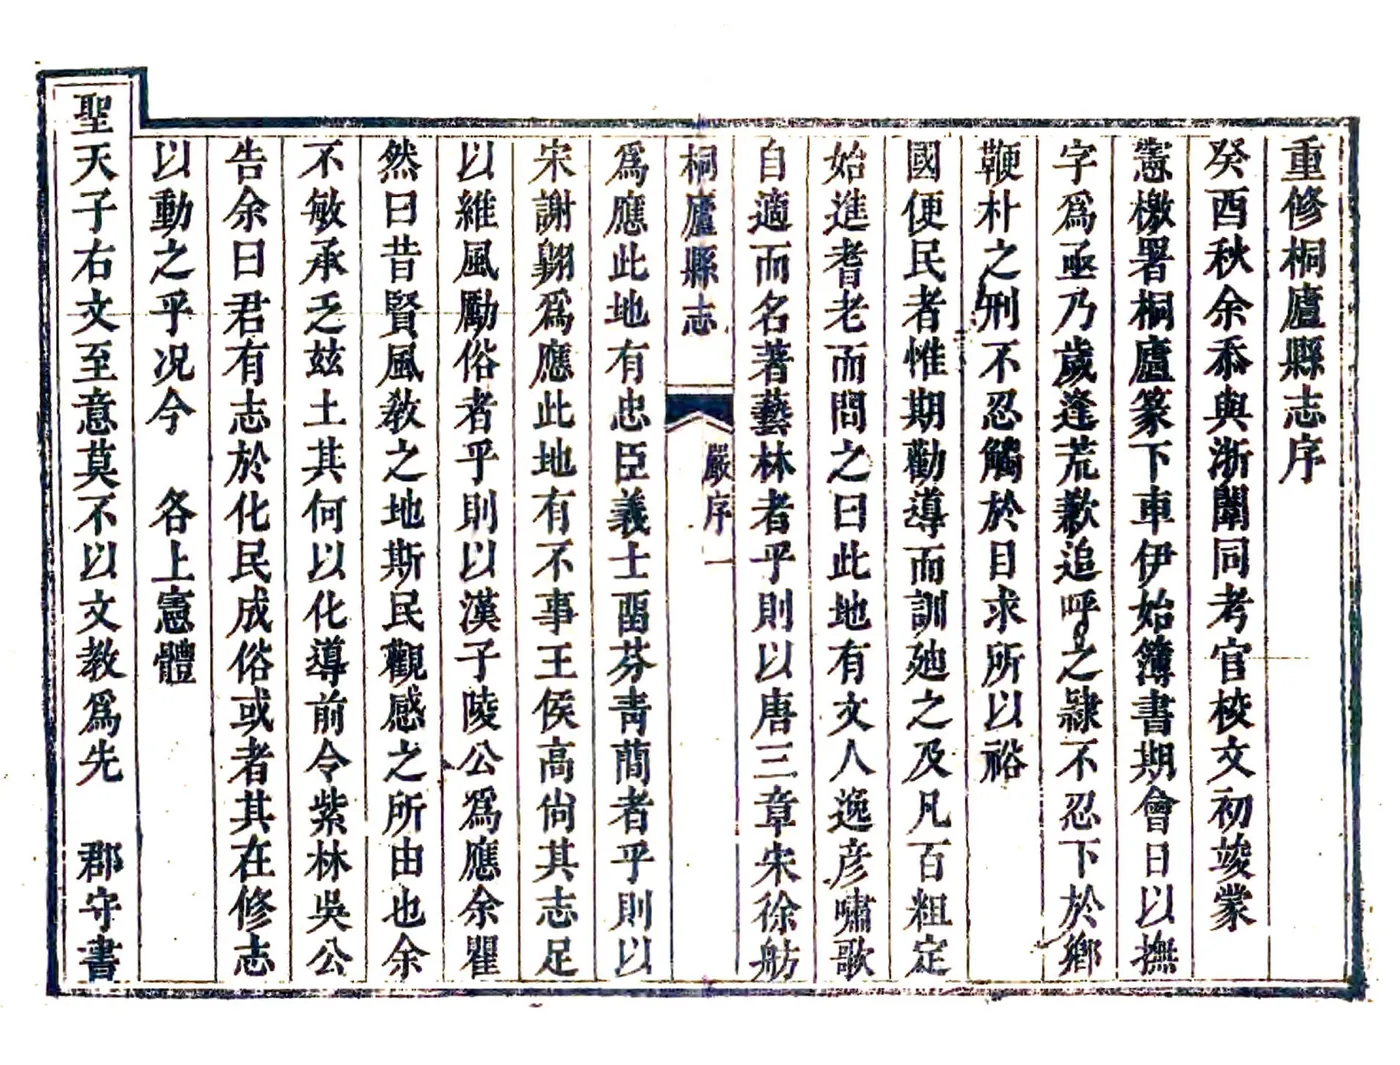 重修桐廬縣志序
癸酉秋余忝與浙闈同考官校文初竣蒙
憲檄署桐廬篆下車伊始簿書期會日以撫
字爲亟乃歲逢荒歉追呼之隸不忍下於鄉
鞭朴之刑不忍觸於目求所以裕
國便民者惟期勸導而訓廸之及凡百粗定
始進耆老而問之曰此地有文人逸彦嘯歌
自適而名著藝林者乎則以唐三章宋徐舫
桐廬縣志
嚴序
一
爲應此地有忠臣義士畱芬靑簡者乎則以
宋謝翺爲應此地有不事王侯高尙其志足
以維風勵俗者乎則以漢子陵公爲應余瞿
然曰昔賢風敎之地斯民觀感之所由也余
不敏承乏玆土其何以化導前令紫林吳公
告余曰君有志於化民成俗或者其在修志
以動之乎况今　各上憲體
聖天子右文至意莫不以文教爲先　郡守書